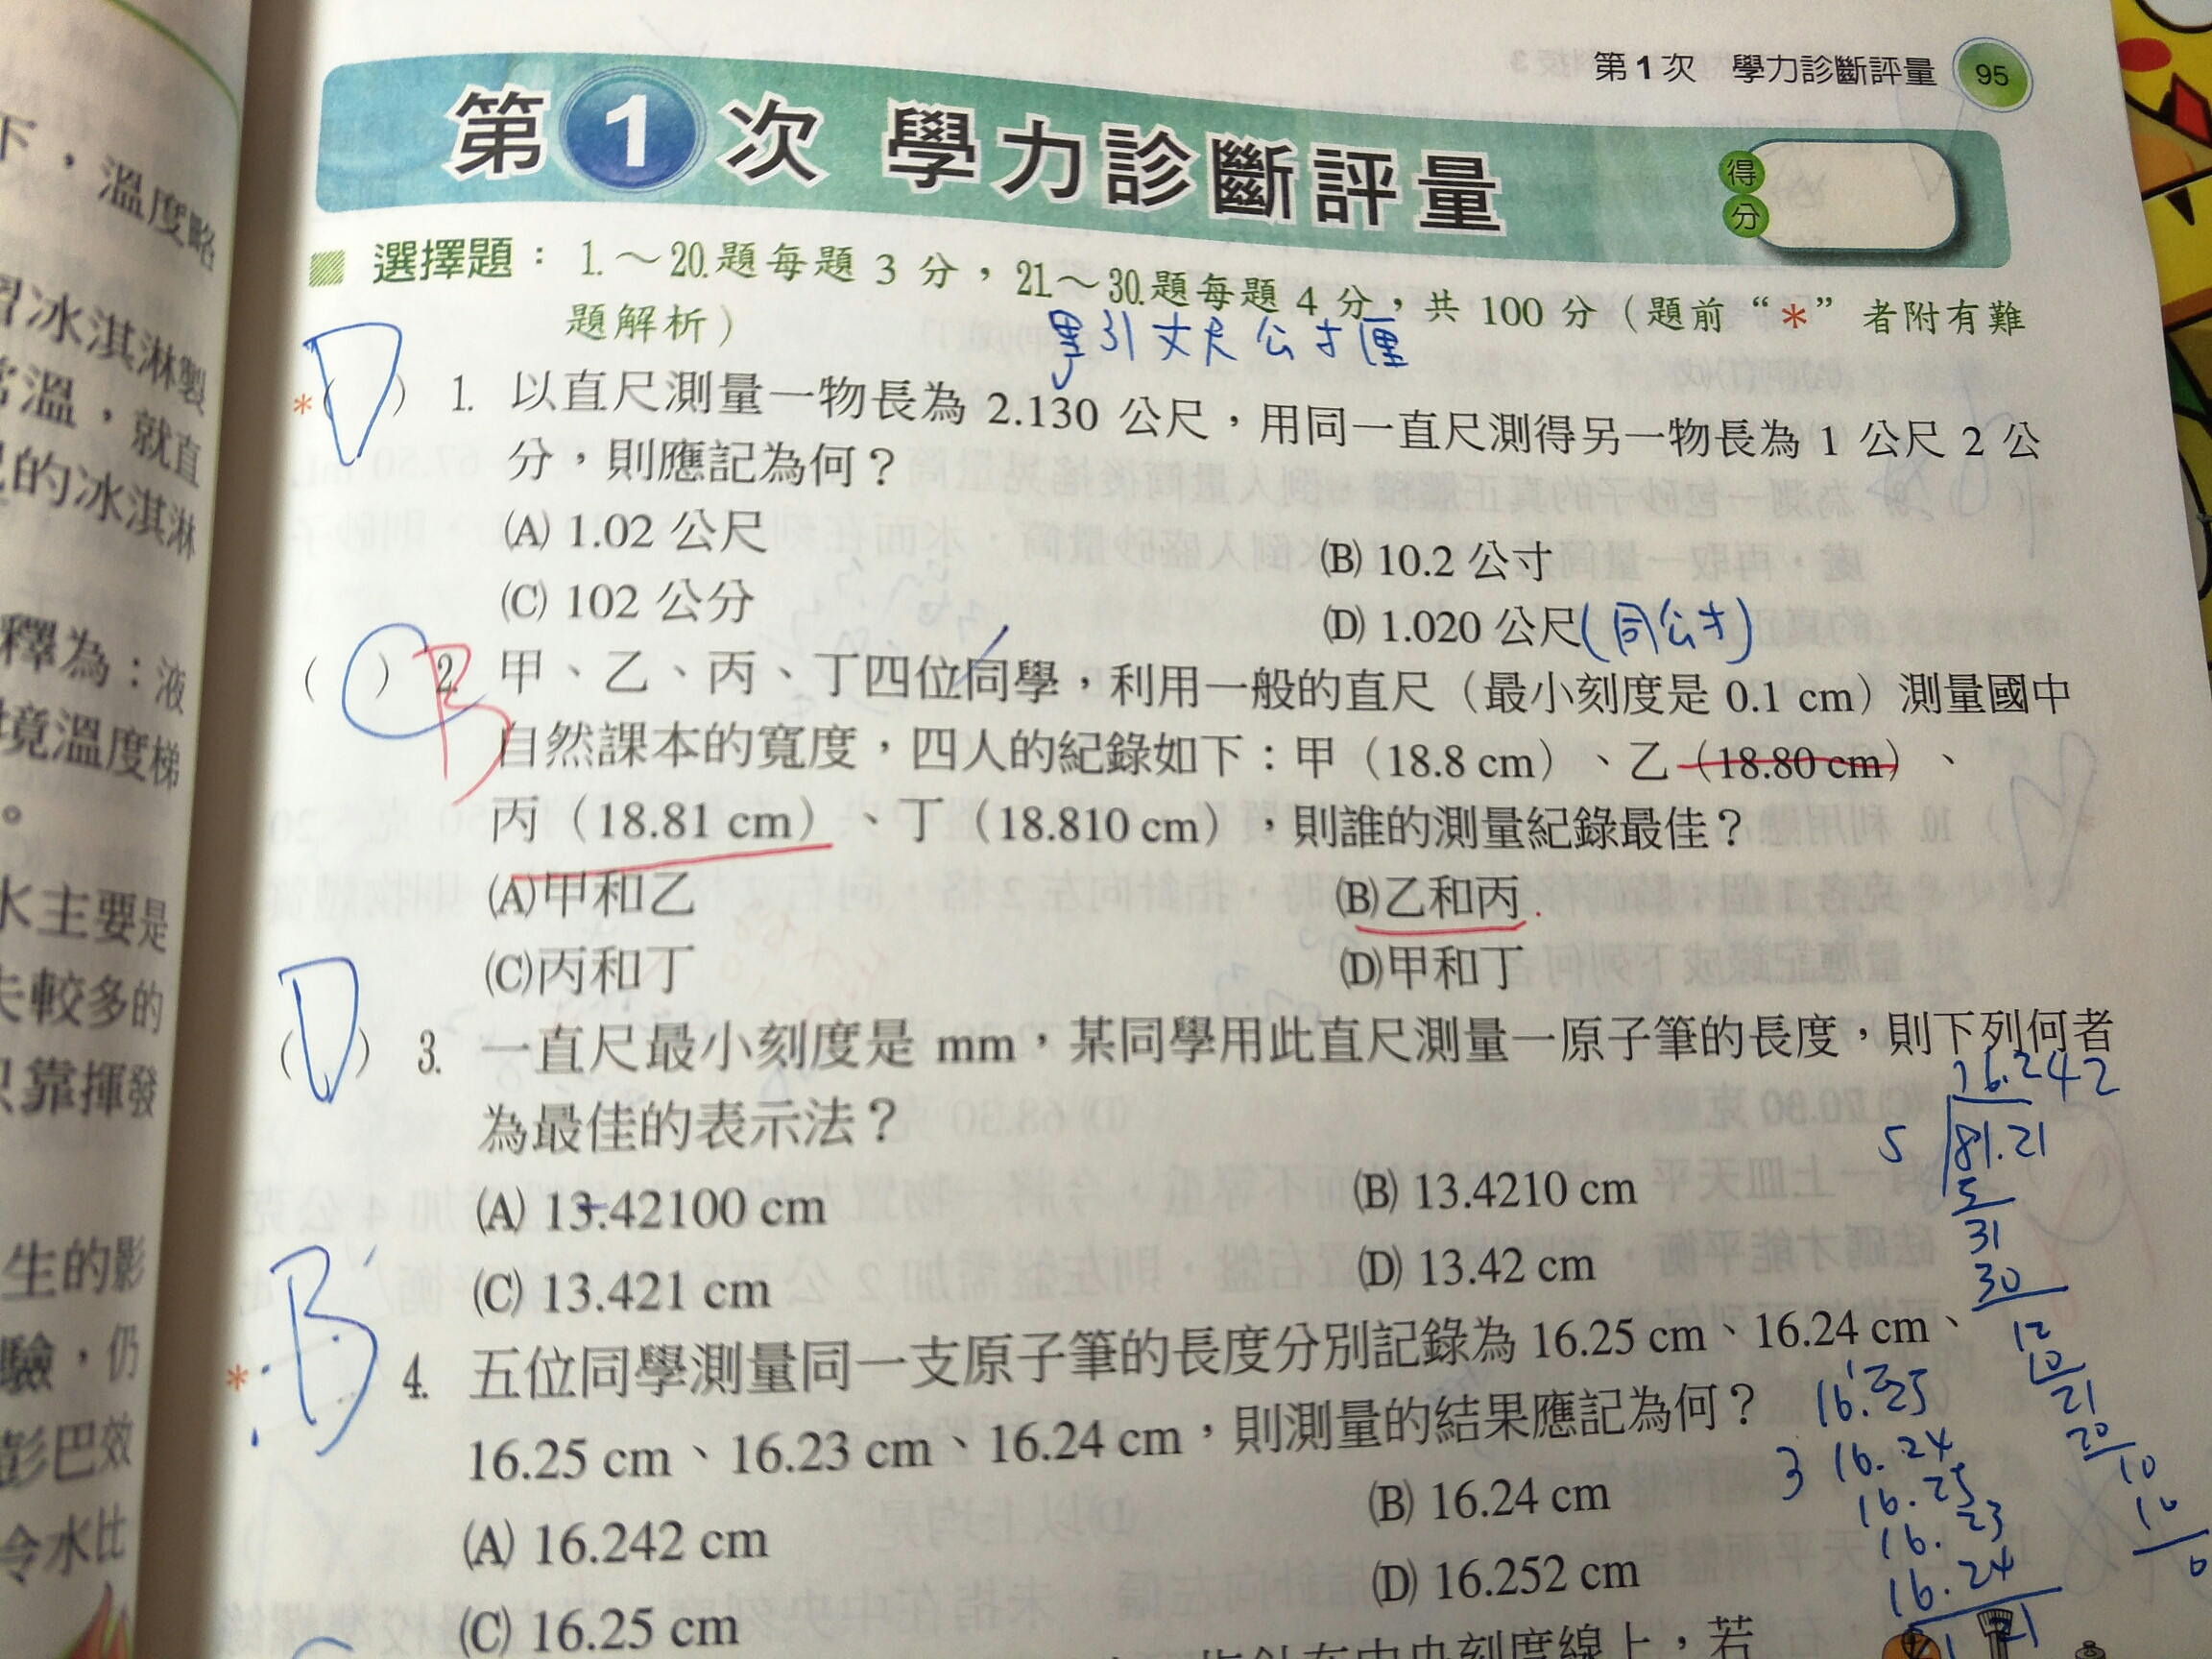 第1次 學力診斷評量 95
第1次 學力診斷評量
得分
選擇題：1.～20.題每題3分，21.～30.題每題4分，共100分（題前“*”者附有難
題解析）
引丈尺公寸厘
*(D) 1. 以直尺測量一物長為 2.130 公尺，用同一直尺測得另一物長為 1 公尺 2 公
分，則應記為何？
(A) 1.02 公尺
(B) 10.2 公寸
(C) 102 公分
(D) 1.020 公尺(同公寸)
( C ) B 2. 甲、乙、丙、丁四位同學，利用一般的直尺（最小刻度是 0.1 cm）測量國中
自然課本的寬度，四人的紀錄如下：甲（18.8 cm）、乙（18.80 cm）、
丙（18.81 cm）、丁（18.810 cm），則誰的測量紀錄最佳？
(A)甲和乙
(B)乙和丙
(C)丙和丁
(D)甲和丁
(D) 3. 一直尺最小刻度是 mm，某同學用此直尺測量一原子筆的長度，則下列何者
為最佳的表示法？
(A) 13.42100 cm
(B) 13.4210 cm
(C) 13.421 cm
(D) 13.42 cm
*B 4. 五位同學測量同一支原子筆的長度分別記錄為 16.25 cm、16.24 cm、
16.25 cm、16.23 cm、16.24 cm，則測量的結果應記為何？
(A) 16.242 cm
(B) 16.24 cm
(C) 16.25 cm
(D) 16.252 cm
指針在中央刻度線上，若
16.242
5 81.21
5
31
30
12
10
21
20
10
10
0
16.25
3 16.24
16.25
16.23
16.24
下，溫度略
習冰淇淋製
常溫，就直
己的冰淇淋
釋為：液
境溫度梯
。
水主要是
失較多的
只靠揮發
生的影
驗，仍
彭巴效
令水比